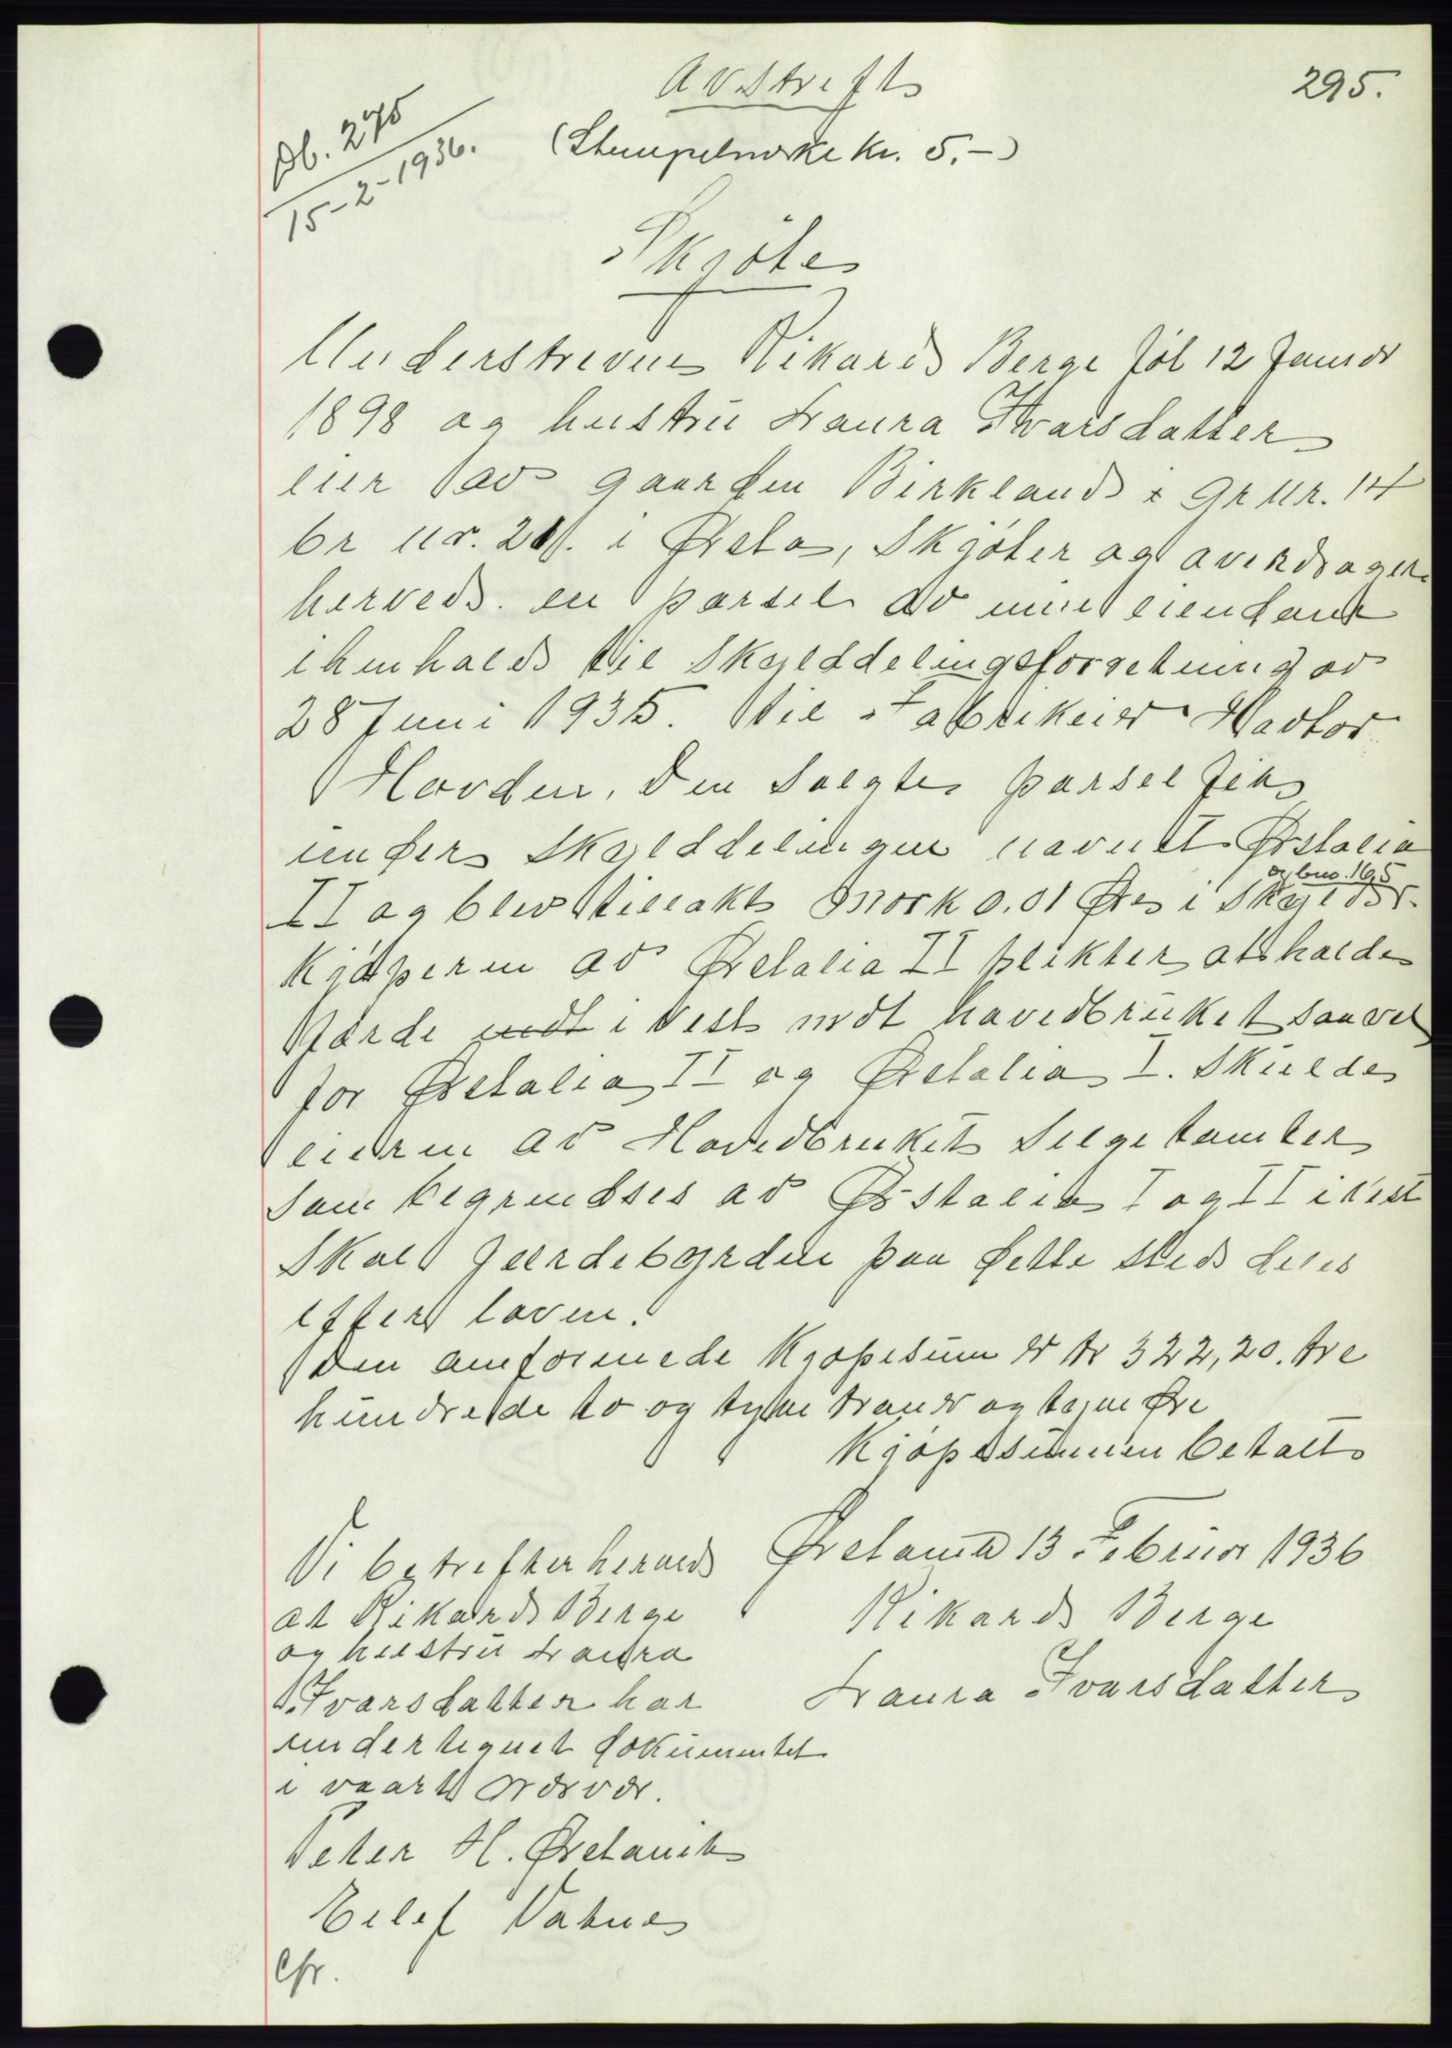 295.
Avskrift
Db. 275
15-2-1936.
(Stempelmerke kr. 5.-)
Skjøte
Underskrevne Rikard Berge føt 12 Januar
1898 og hustru Laura Ivarsdatter
eier av gaarden Birkland i gr nr. 14
br nr. 21. i Ørsta, skjøter og averdrager
herved en parsel av min eiendom
i henhold til skylddelingsforretning av
28 Juni 1935. til Fabrikeier Havtor
Hovden. Den solgte parsel fik
under skylddelingen navnet Ørstalia
og bno. 165
II og blev tillakt mork 0.01 Øre i skyld
Kjøperen av Ørstalia II plikter at holde
Gjærde mot i vest mot hovedbruket saavel
for Ørstalia II og Ørstalia I. Skulde
eieren av Hovedbruket selge tomter
som begrendses av Ørstalia I og II i vest
skal gjerdebyrden paa dette sted deles
efter loven.
Den omforenede Kjøpesum er kr 322,20. tre
hundrede to og tyve kroner og tyve Øre
Kjøpesummen betalt
Vi bekrefter herved
at Rikard Berge
og hustru Laura
Ivarsdatter har
undertegnet dokumentet
i vaart nærvær.
Peter H. Ørstavik
Eilef Vatne
Cfr.
Ørstavik 13 Februar 1936
Rikard Berge
Laura Ivarsdatter